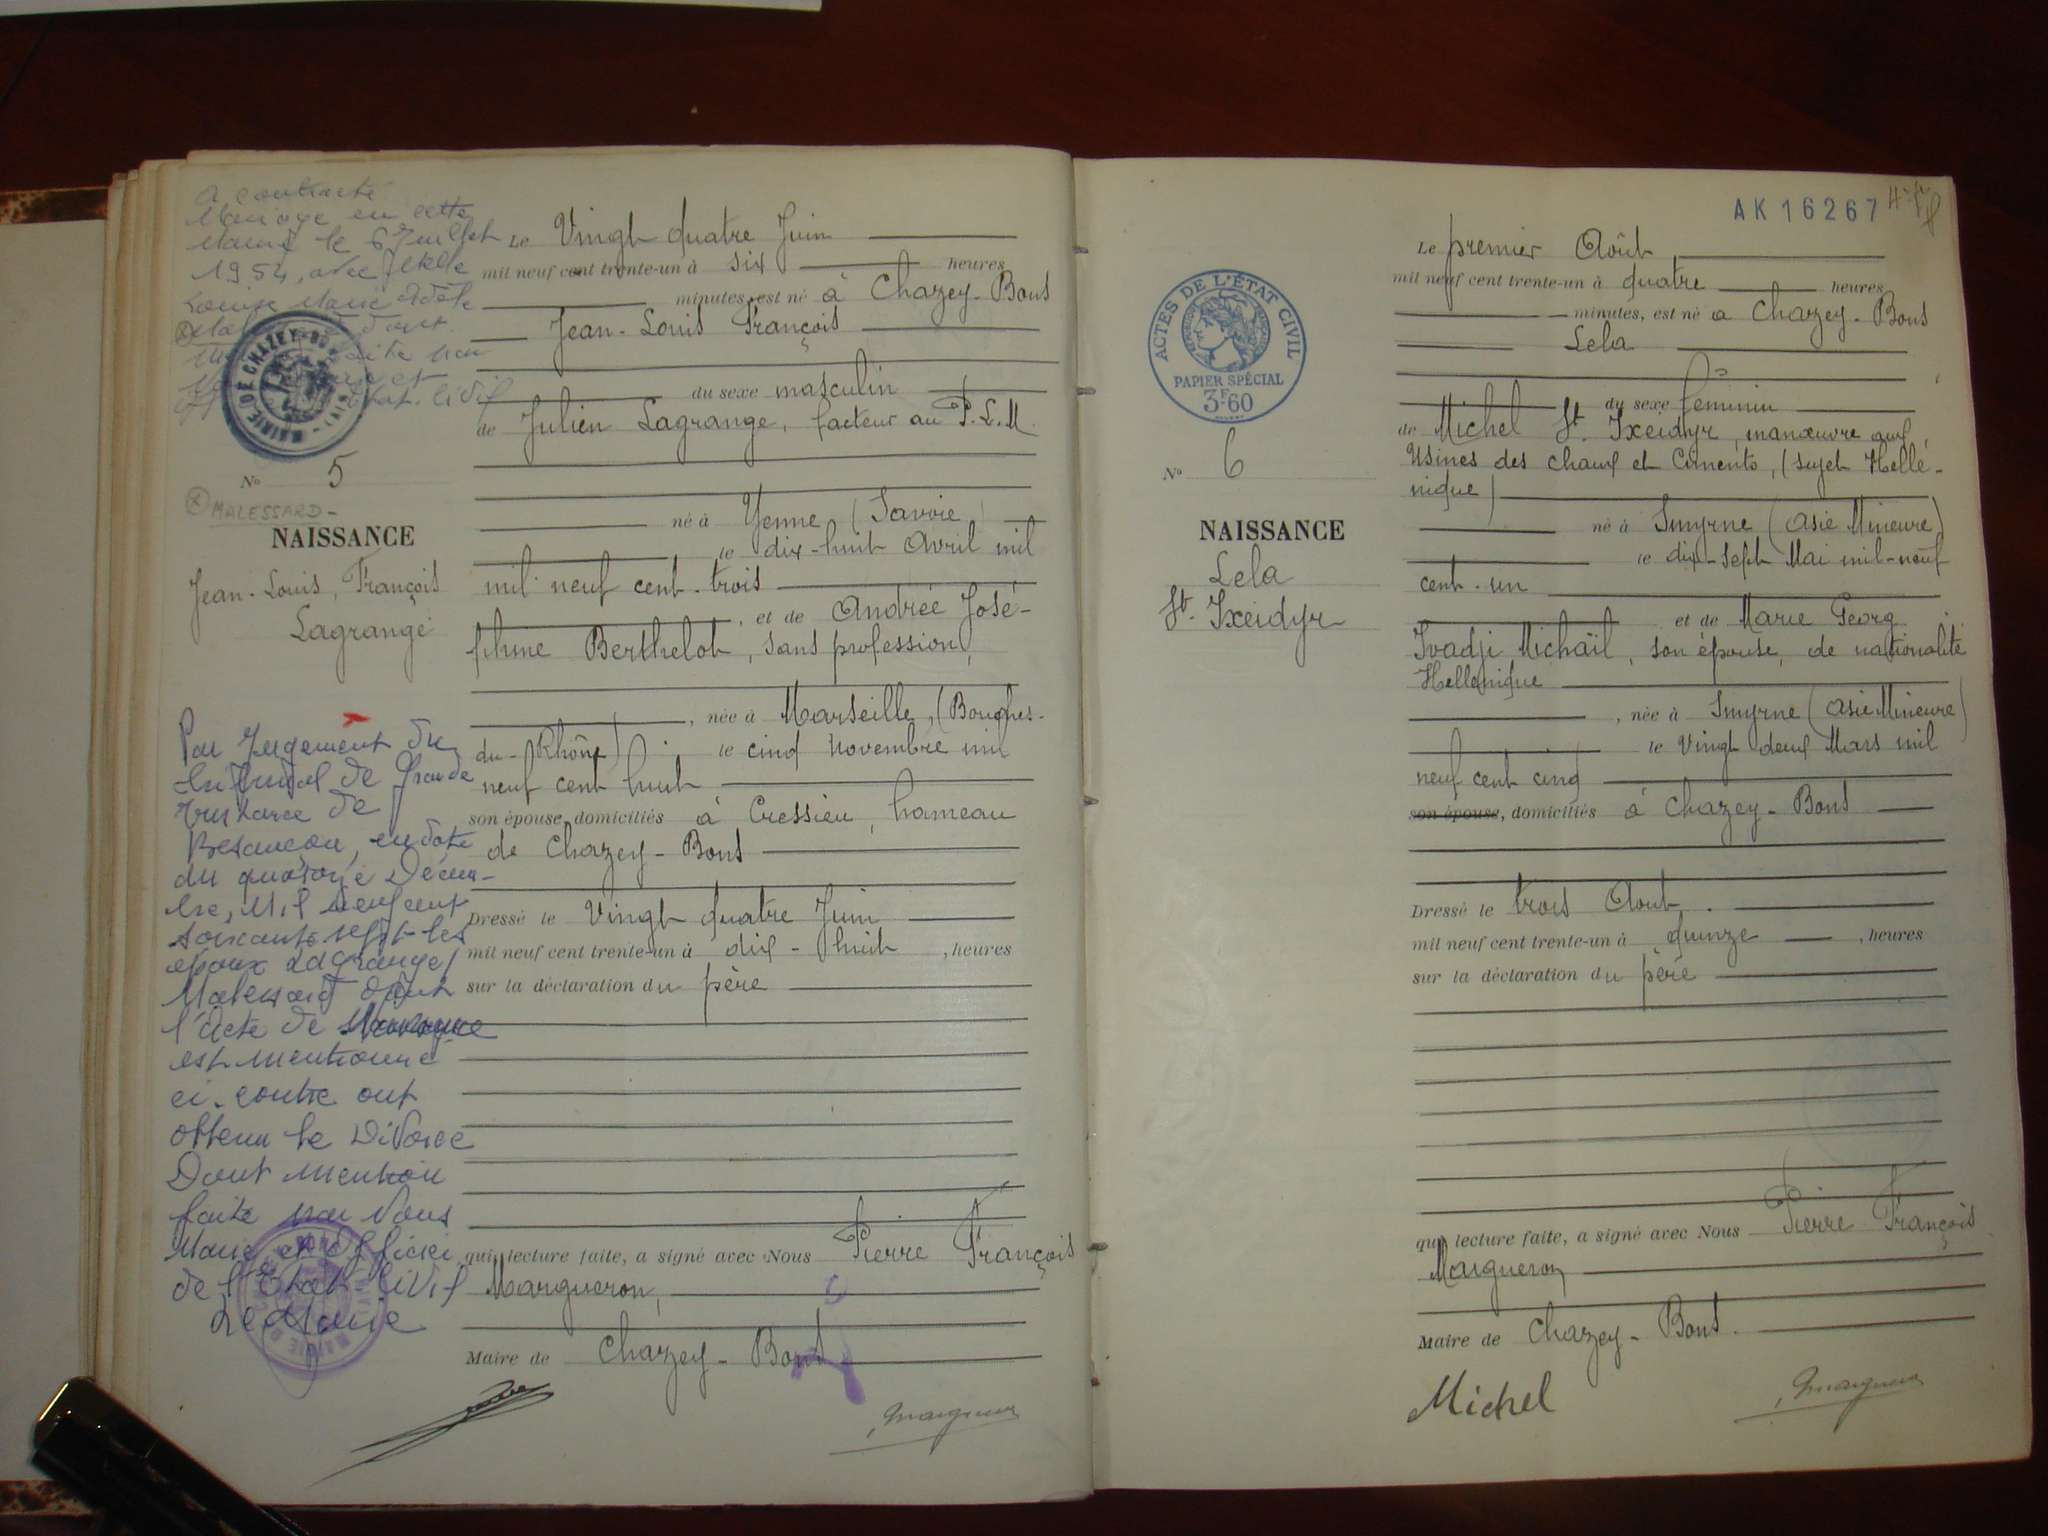 a contracté
Mariage en cette
Mairie le 6 Juillet
1954, avec
Louise Marie Adèle
dont
faite par
Etat-Civil
MAIRIE DE CHAZEY-BONS
No 5
MALESSARD-
NAISSANCE
Jean-Louis, François
Lagrange
Par Jugement du
tribunal de Grande
Instance de
Besançon, en date
du quatorze Décem-
bre, Mil neuf cent
soixante sept les
époux Lagrange/
Malessard dont
l'acte de
est mentionné
ci-contre ont
obtenu le Divorce
Dont mention
faite par Nous
Maire et Officier
de l'Etat-Civil
Le Maire
Le Vingt quatre Juin
mil neuf cent trente-un à six heures
minutes, est né à Chazey-Bons
Jean-Louis François
du sexe masculin
de Julien Lagrange, facteur au P.L.M.
né à Yenne (Savoie)
le dix-huit Avril mil
mil neuf cent-trois
, et de Andrée José-
phine Berthelot, sans profession,
, née à Marseille, (Bouches-
du-Rhône) le cinq novembre mil
neuf cent huit
son épouse, domiciliés à Cressieu, hameau
de Chazey-Bons
Dressé le Vingt quatre Juin
mil neuf cent trente-un à dix-huit, heures
sur la déclaration du père
qui, lecture faite, a signé avec Nous Pierre François
Margueron,
Maire de Chazey-Bons
Margueron
AK 16267
ACTES DE L'ÉTAT CIVIL
PAPIER SPÉCIAL
3F60
No 6
NAISSANCE
Lela
St. Ixeidyr
Le premier Août
mil neuf cent trente-un à quatre heures
minutes, est né à Chazey-Bons
Lela
du sexe féminin
de Michel St. Ixeidyr, manœuvre aux
Usines des chaux et Ciments, (sujet Hellé-
nique)
né à Smyrne (Asie Mineure)
le dix-sept Mai mil-neuf
cent-un
et de Marie Georg
Ivadji Michaïl, son épouse, de nationalité
Hellenique
, née à Smyrne (Asie Mineure)
le Vingt deux Mars mil
neuf cent cinq
son épouse, domiciliés à Chazey-Bons
Dressé le trois Août.
mil neuf cent trente-un à quinze, heures
sur la déclaration du père
qui, lecture faite, a signé avec Nous Pierre François
Margueron
Maire de Chazey-Bons.
Michel
Margueron